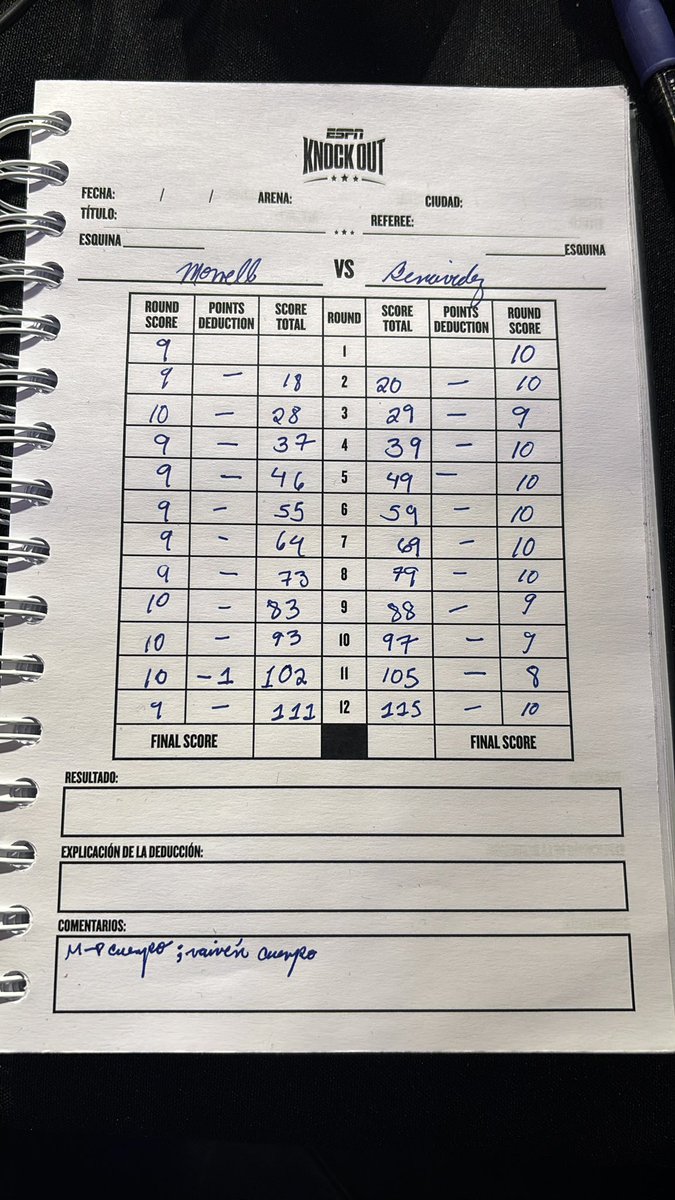 ESPN
KNOCK OUT
FECHA: / / ARENA: CIUDAD:
TÍTULO: REFEREE:
ESQUINA ESQUINA
Morrell VS Benavidez
ROUND SCORE POINTS DEDUCTION SCORE TOTAL ROUND SCORE TOTAL POINTS DEDUCTION ROUND SCORE
9 1 10
9 — 18 2 20 — 10
10 — 28 3 29 — 9
9 — 37 4 39 — 10
9 — 46 5 49 — 10
9 — 55 6 59 — 10
9 - 64 7 69 — 10
9 — 73 8 79 — 10
10 — 83 9 88 — 9
10 — 93 10 97 — 9
10 -1 102 11 105 — 8
9 — 111 12 115 — 10
FINAL SCORE FINAL SCORE
RESULTADO:
EXPLICACIÓN DE LA DEDUCCIÓN:
COMENTARIOS:
cuerpo ; vaivén cuerpo